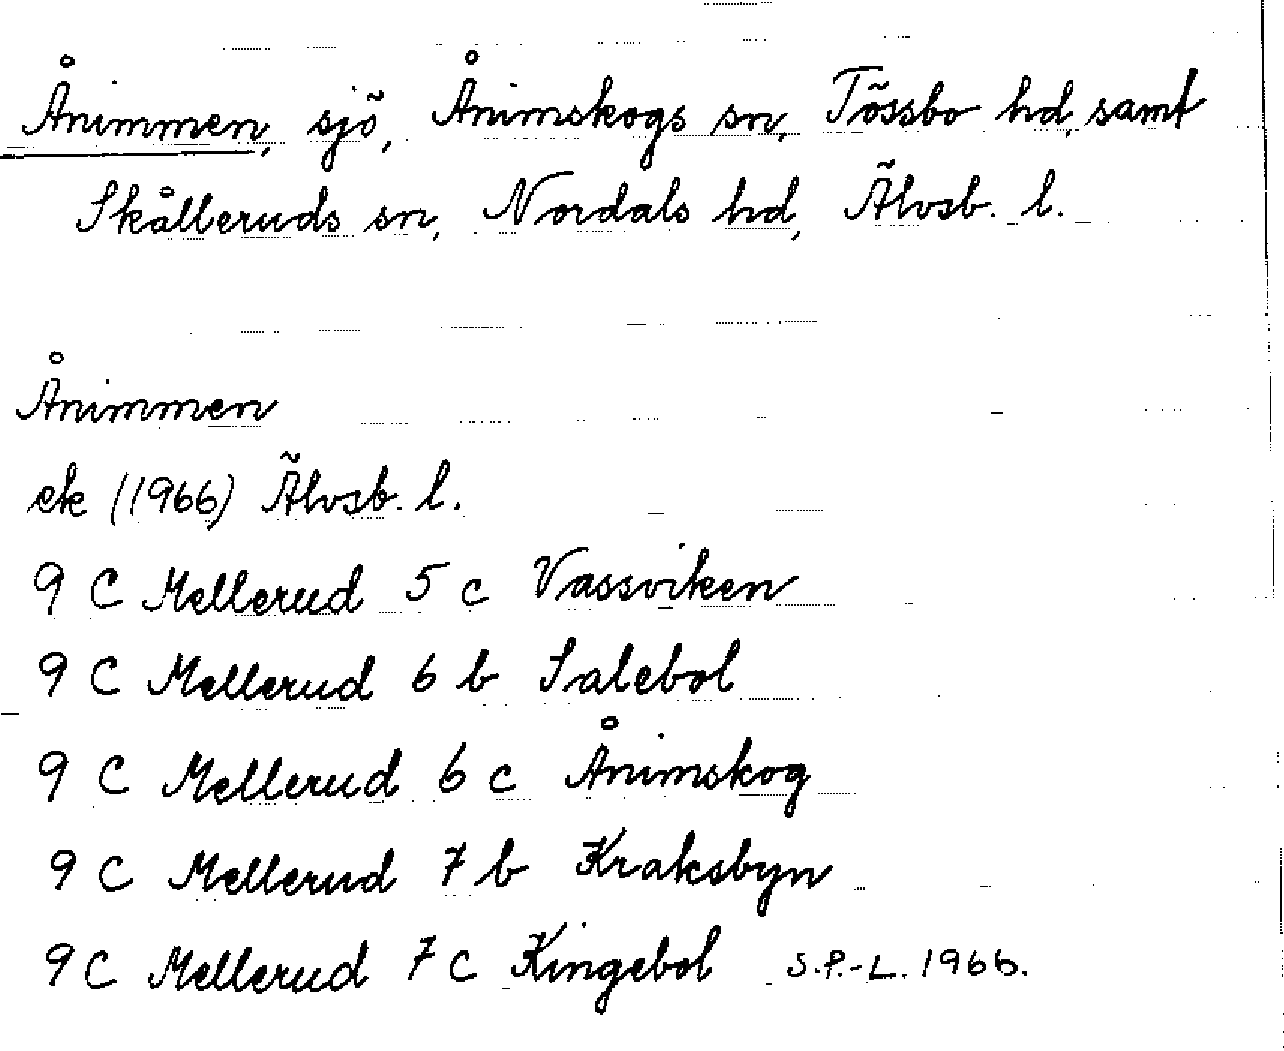 Ånimmen, sjö, Ånimskogs sn, Tössbo hd, samt
Skålleruds sn, Nordals hd, Älvsb. l.
Ånimmen
ek (1966) Älvsb. l.
9 C Mellerud 5 c Vassviken
9 C Mellerud 6 b Salebol
9 C Mellerud 6 c Ånimskog
9 C Mellerud 7 b Kraksbyn
9 C Mellerud 7 c Kingebol S.P.-L. 1966.